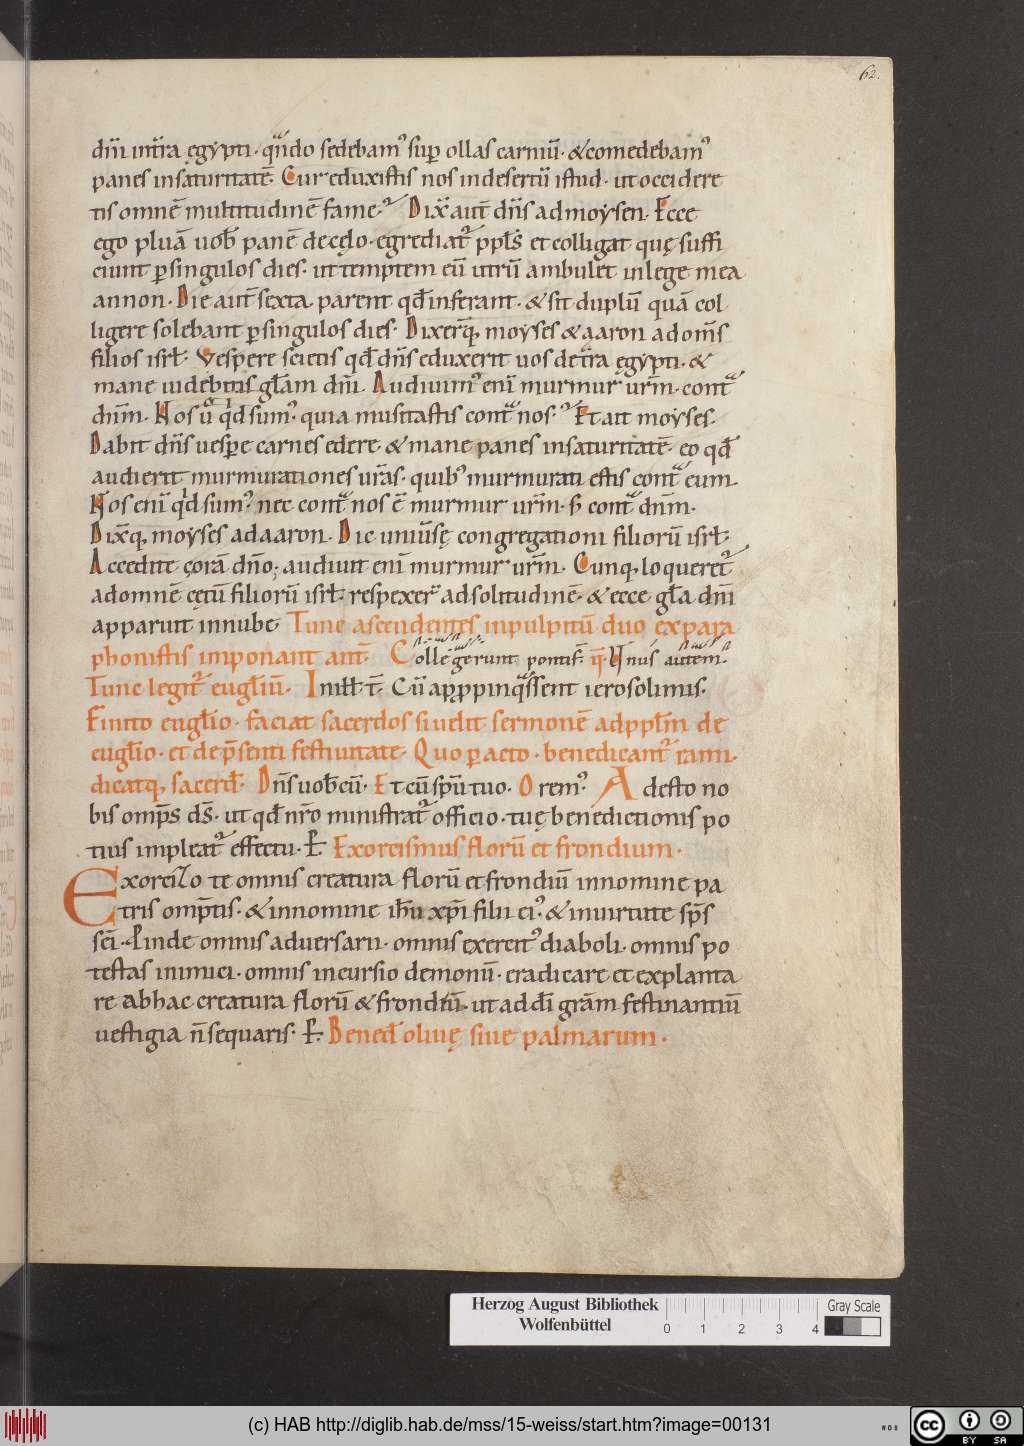 62.
dñi int̃ra ęgypti · qñdo sedebam᾽ sup ollas carniũ · & comedebam᾽
panes insaturitatẽ · Cur eduxistis nos indesertũ istud · ut occidere
tis omnẽ multitudinẽ fame · Dix̃ aut̃ dñs admoysen · Ecce
ego pluã uob̃ panẽ decęlo · egrediat᾽ ppl̃s et colligat quę suffi
ciunt p singulos dies · ut temptem eũ utrũ ambulet inlege mea
annon · Die aut̃ sexta parent qd̃ inferant · & sit duplũ quã col
ligere solebant p singulos dies · Dixer̃q, moyses & aaron adom̃s
filios isrł · Vespere scietis qd̃ dñs eduxerit uos det̃ra ęgypti · &
mane uidebitis głam dñi · Audiuim᾽ enĩ murmur ur̃m · cont̃
dñm · Nos ũ qd sum᾽ · quia musitastis cont̃ nos · Et ait moyses ·
Dabit dñs uespe carnes edere & mane panes insaturitatẽ · eo qd̃
audierit murmurationes ur̃as · quib᾽ murmurati estis cont̃ eum ·
Nos enĩ qd sum᾽ · nec cont̃ nos ẽ murmur ur̃m · s̃ cont̃ dñm ·
Dix̃q, moyses adaaron · Dic uniũsę congregationi filiorũ isrł ·
Accedite corã dño; audiuit enĩ murmur ur̃m · Cunq, loqueret᾽
adomnẽ cętũ filiorũ isrł · respexer̃ adsolitudinẽ · & ecce gła dñi
apparuit innube · Tunc ascendentes inpulpitũ duo expara
phonistis imponant ant̃ · Collegerunt pontif̃ · ꝟ̃ · Unus autem ·
Tunc legit᾽ eugl̃iũ · Inillł t̃ · Cũ appropinq̃ssent ierosolimis ·
Finito eugl̃io · faciat sacerdos siuelit sermonẽ adppl̃m de
eugl̃io · et de p̃senti festiuitate · Quo pacto · benedicant᾽ rami ·
dicatq, sacerd̃ · Dñs uob̃cũ · Et cũ spũ tuo · Orem᾽ Adesto no
bis omp̃s ds̃ · ut qd̃ nr̃o ministrat᾽ officio · tuę benedictionis po
tius impleat᾽ effectu · P · Exorcismus florũ et frondium ·
Exorcizo te omnis creatura florũ et frondiũ innomine pa
tris omp̃tis · & innomine ih̃u xp̃i filii ei᾽ · & inuirtute sp̃s
sc̃i · Pinde omnis aduersarii · omnis exercit᾽ diaboli · omnis po
testas inimici · omnis incursio demonũ · eradicare et explanta
re abhac creatura florũ & frondiũ · ut addĩ grãm festinantiũ
uestigia ñ sequaris · P · Bened̃ oliuę siue palmarum ·
Herzog August Bibliothek
Wolfenbüttel
0 1 2 3 4
Gray Scale
(c) HAB http://diglib.hab.de/mss/15-weiss/start.htm?image=00131
cc BY SA